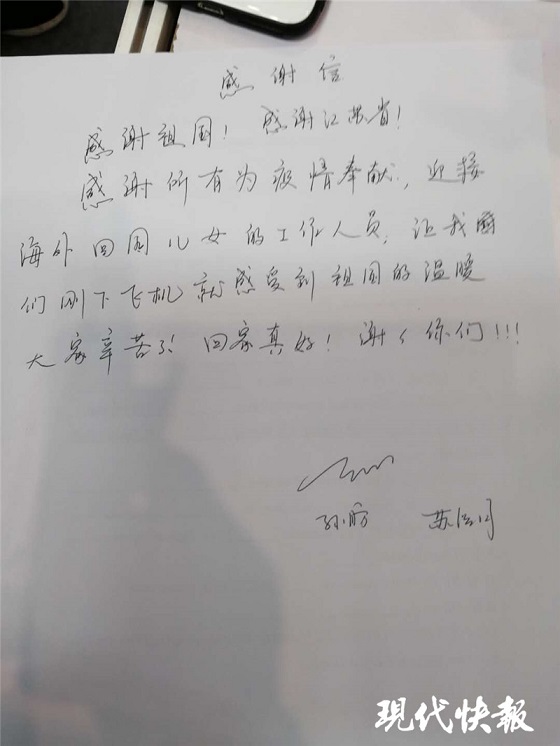 感谢信
感谢祖国！ 感谢江苏省！
感谢所有为疫情奉献，迎接
海外回国儿女的工作人员，让我
们刚下飞机就感受到祖国的温暖
大家辛苦了！回家真好！谢谢你们!!!
孙
苏
现代快报